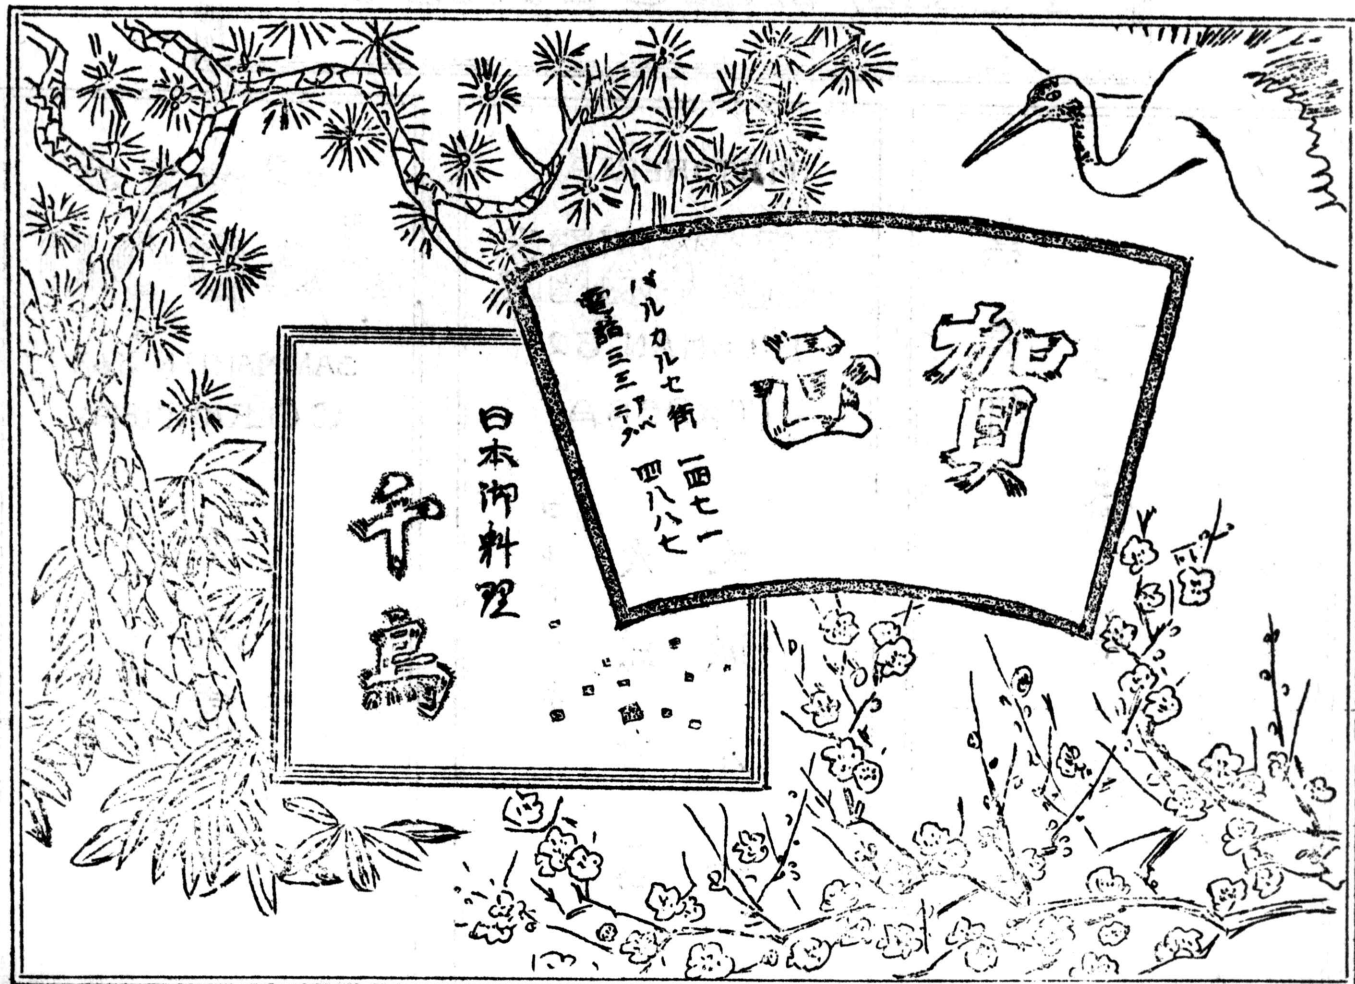 賀正
バルカルセ街 一四七一
電話三三 アベニーダ 四八八七
日本御料理
千鳥